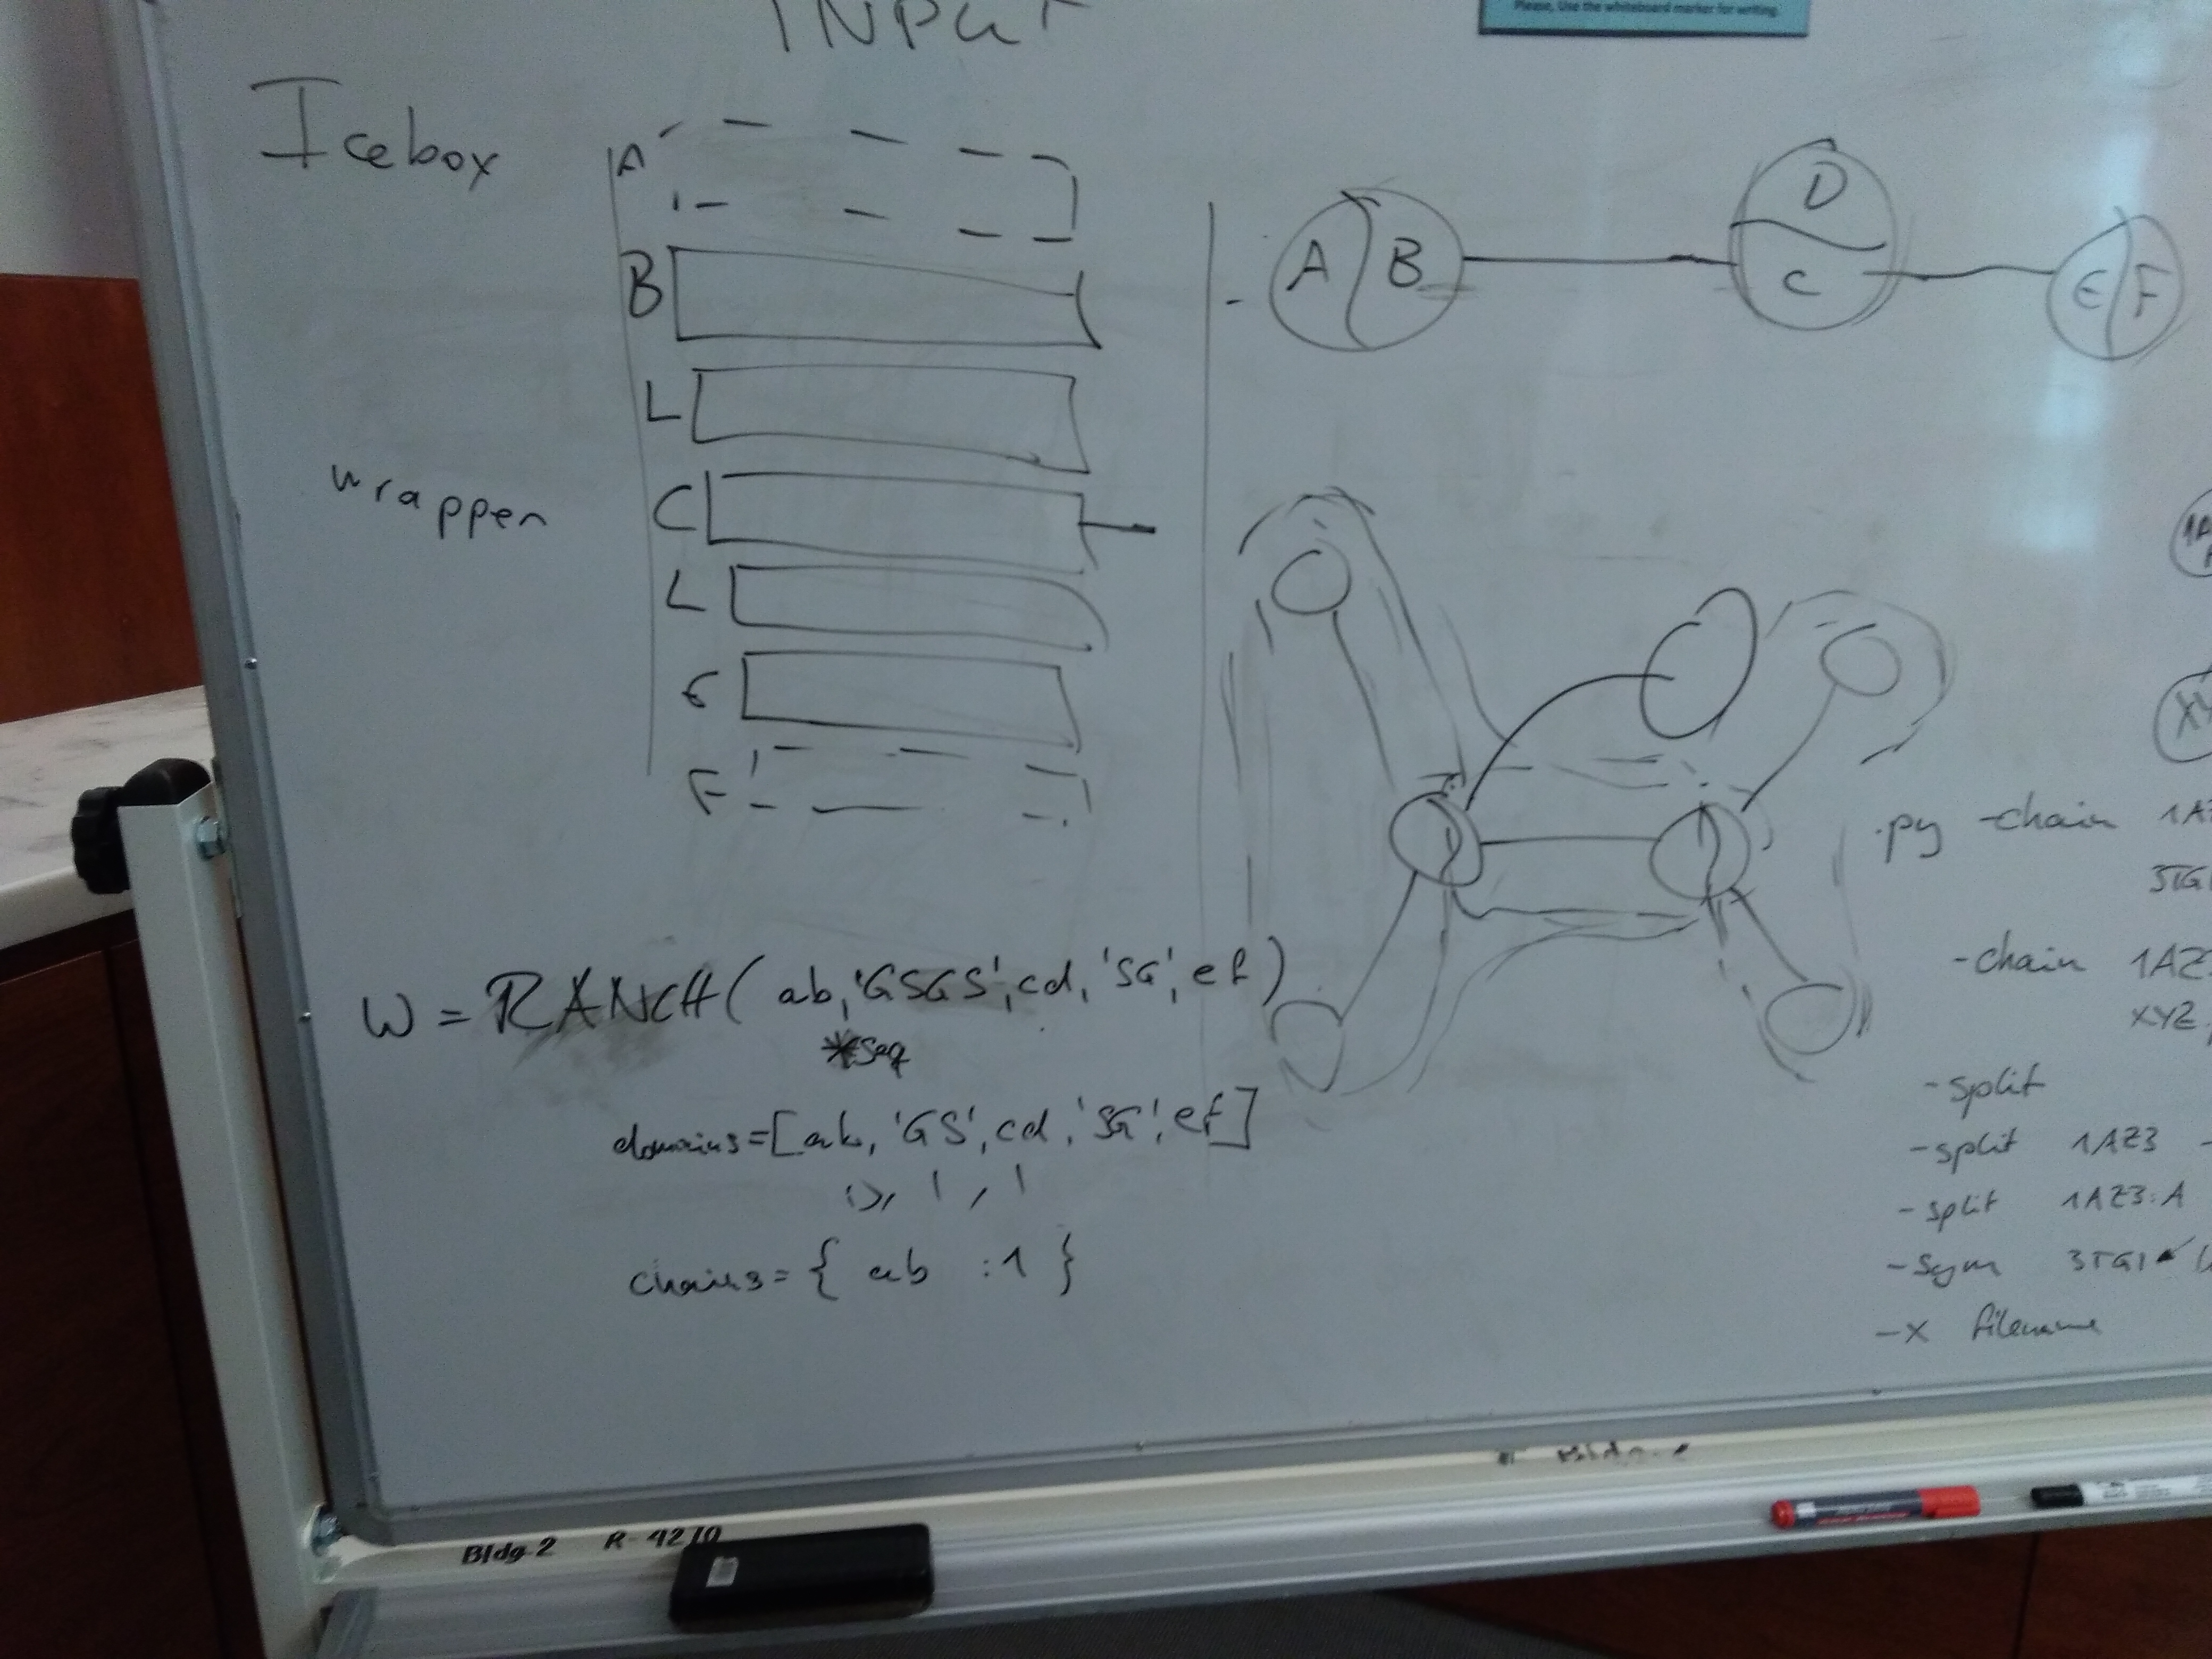 INPUT
Please, Use the whiteboard marker for writing.
Icebox
wrapper
A
B
L
C
L
E
F
A B
D
C
E F
W = RANCH( ab, 'GSGS', cd, 'SG', ef )
*seq
domains=[ab, 'GS', cd, 'SG', ef]
chains= { ab :1 }
.py -chain 1AZ
3TG1
-chain 1AZ
XYZ
-split
-split 1AZ3 -
-split 1AZ3:A
-sym 3TG1
-x filename
Bldg-2 R-4270